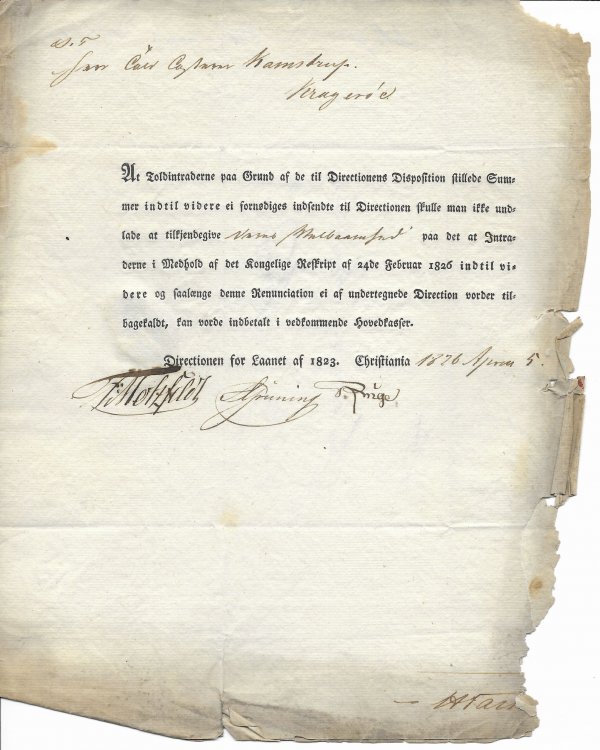 Herr Told Casserer Kamstrup.
Kragerøe
At Toldintraderne paa Grund af de til Directionens Disposition stillede Sum-
mer indtil videre ei fornødiges indsendte til Directionen skulle man ikke und-
lade at tilkjendegive Deres Velbaarenhed paa det at Intra-
derne i Medhold af det Kongelige Reskript af 24de Februar 1826 indtil vi-
dere og saalænge denne Renunciation ei af undertegnede Direction vorder til-
bagekaldt, kan vorde indbetalt i vedkommende Hovedkasser.
Directionen for Laanet af 1823. Christiania 1826 April 5.
Motzfeldt Brüning Runge